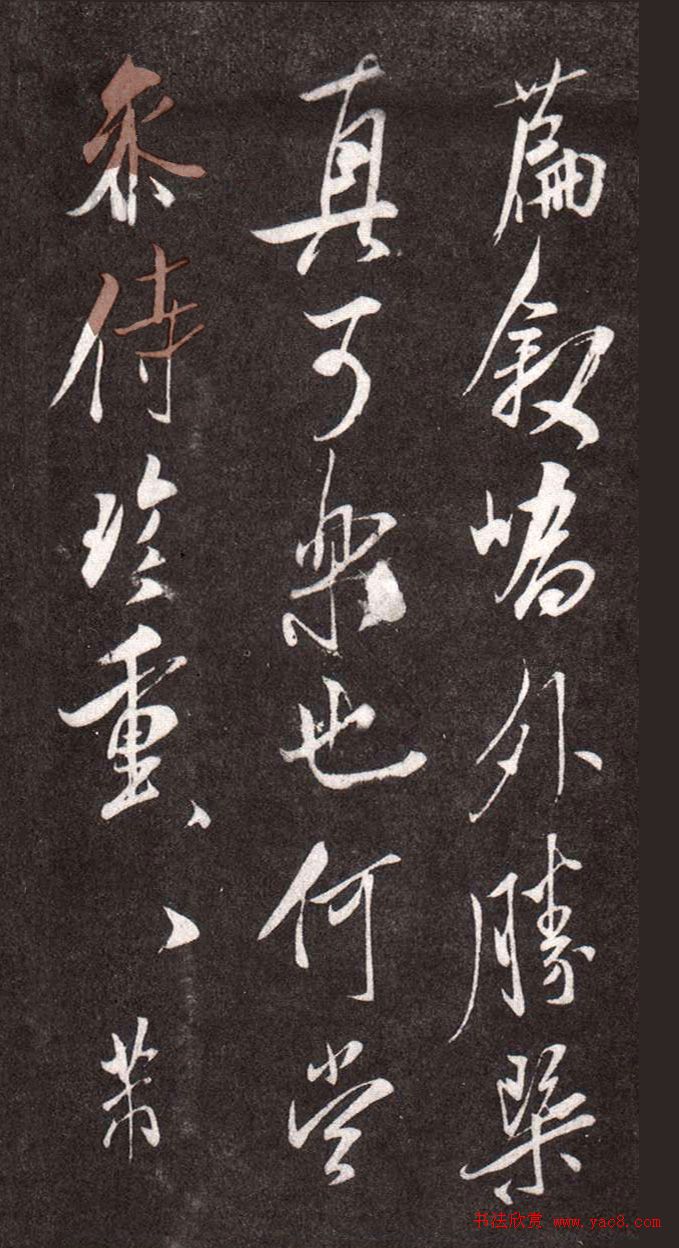 篇叙嶠外勝槩
真可樂也何當
叅侍珍重、、、芾
书法欣赏 www.yac8.com